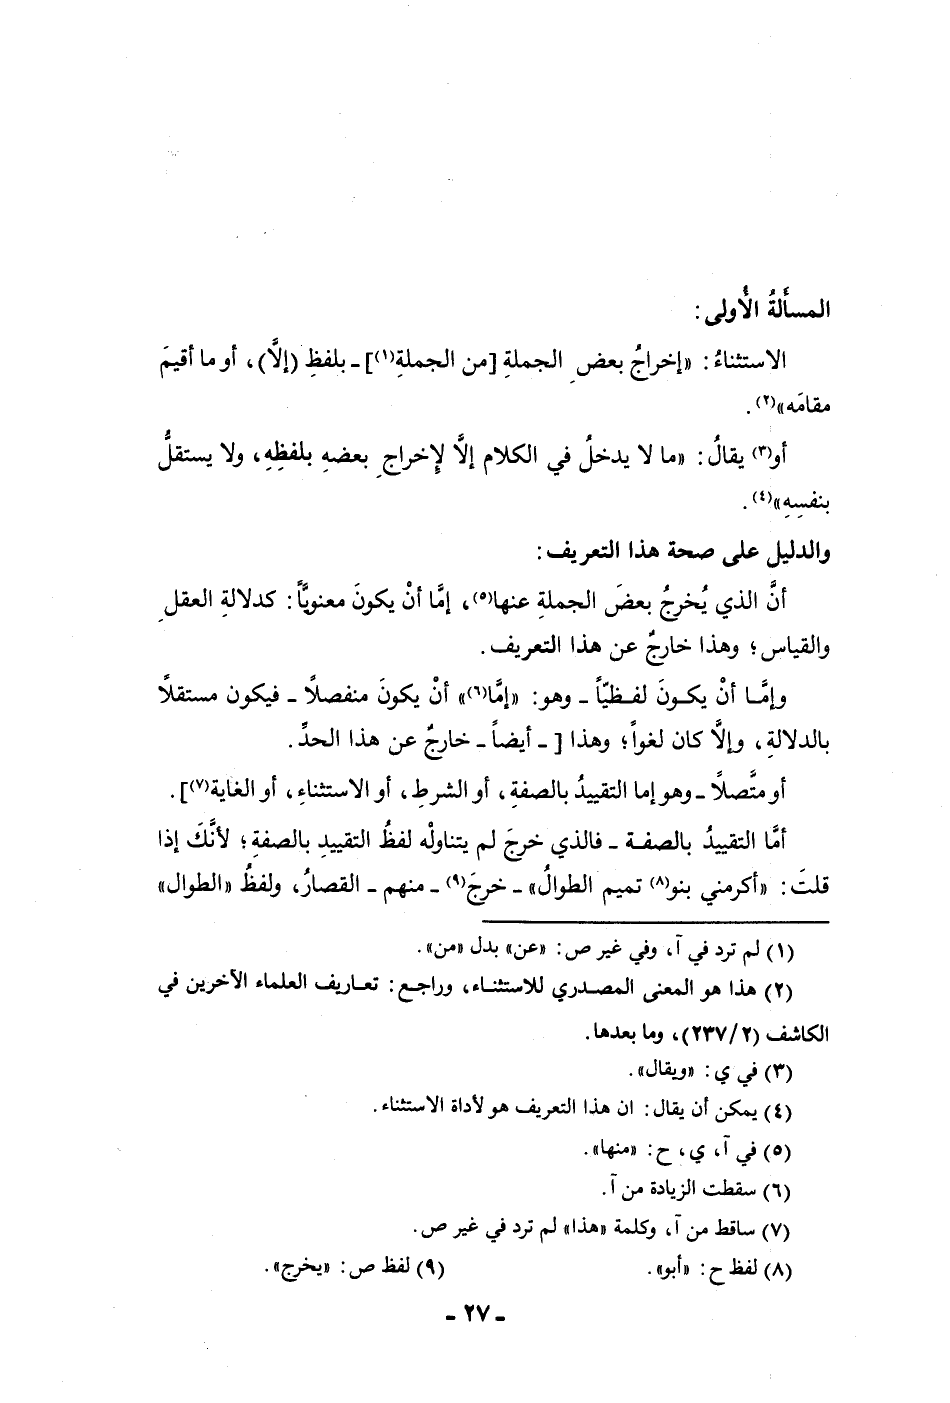 المسأَلةُ الأُولى:
الاستثناءُ: «إخراجُ بعضِ الجملةِ [من الجملةِ(١)] ـ بلفظِ (إلاَّ)، أو ما أقيمَ
مقامَه»(٢).
أو(٣) يقالُ: «ما لا يدخلُ في الكلام إلاَّ لإِخراجِ بعضهِ بلفظِهِ، ولا يستقلُّ
بنفسِهِ»(٤).
والدليل على صحة هذا التعريف:
أنَّ الذي يُخرجُ بعضَ الجملةِ عنها(٥)، إمَّا أنْ يكونَ معنويَّاً: كدلالةِ العقلِ
والقياس؛ وهذا خارجٌ عن هذا التعريف.
وإمَّا أنْ يكونَ لفظيّاً ـ وهو: «إمَّا(٦)» أنْ يكونَ منفصلاً ـ فيكون مستقلاً
بالدلالةِ، وإلاَّ كان لغواً؛ وهذا [ ـ أيضاً ـ خارجٌ عن هذا الحدِّ.
أو متَّصلاً ـ وهو إما التقييدُ بالصفةِ، أو الشرطِ، أو الاستثناءِ، أو الغاية(٧)].
أمَّا التقييدُ بالصفة ـ فالذي خرجَ لم يتناولْه لفظُ التقييدِ بالصفةِ؛ لأنَّكَ إذا
قلتَ: «أكرمني بنو(٨) تميم الطوالُ» ـ خرجَ(٩) ـ منهم ـ القصارُ، ولفظُ «الطوال»
(١) لم ترد في آ، وفي غير ص: «عن» بدل «من».
(٢) هذا هو المعنى المصدري للاستثناء، وراجع: تعاريف العلماء الآخرين في
الكاشف (٢٣٧/٢)، وما بعدها.
(٣) في ي: «ويقال».
(٤) يمكن أن يقال: ان هذا التعريف هو لأداة الاستثناء.
(٥) في آ، ي، ح: «منها».
(٦) سقطت الزيادة من آ.
(٧) ساقط من آ، وكلمة «هذا» لم ترد في غير ص.
(٨) لفظ ح: «أبو». (٩) لفظ ص: «يخرج».
ـ ٢٧ ـ